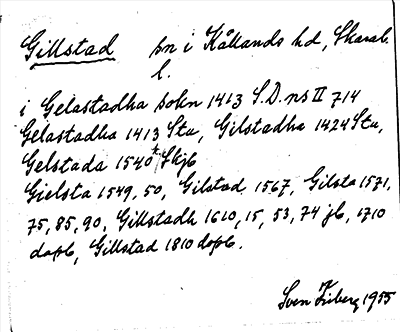 Gillstad sn i Kållands hd, Skarab.
l.
i Gelastadha sokn 1413 S.D. ns II 714
Gelastadha 1413 Stu, Gilstadha 1424 Stu,
Gelstada 1540 t Skjb
Gielsta 1549, 50, Gilstad 1567, Gilsta 1571,
75, 85, 90, Gillstadh 1610, 15, 53, 74 jb, 1710
dopb, Gillstad 1810 dopb.
Sven Friberg 1955